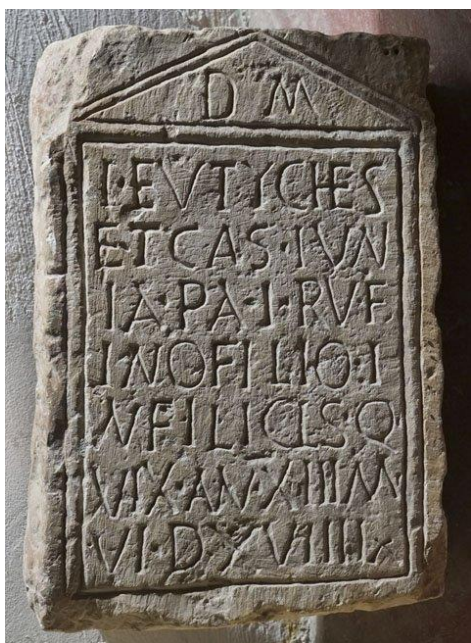 D M
I·EVTYCHES
ET CAS·IVN
IA·PA·I·RVF
INO FILIO I
NFILICIS Q
VIX·AN·XIII M
VI D XVIIII